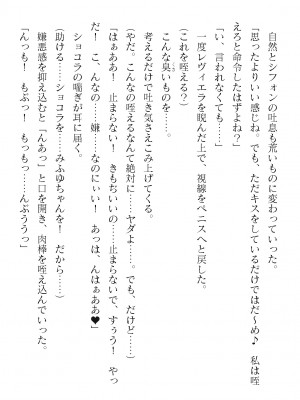 自然とシフォンの吐息も荒いものに変わっていった。
「思ったよりいい感じね。でも、ただキスをしているだけではだ～め♪　私は咥
えろと命令したはずよね？」
「い、言われなくても……」
一度レヴィエラを睨んだ上で、視線をペニスへと戻した。
（これを咥える？　こんな臭いものを……）
考えるだけで吐き気さえこみ上げてくる。
（やだ。こんなの咥えるなんて絶対に……ヤダよ……。でも、だけど……）
「はぁああ！　止まらない！　きもちいいの……止まらないで、すぅう！　やっ
こ、こんなの……嫌……なのにぃい！　あっは、んはぁああ♥」
ショコラの喘ぎが耳に届く。
（助ける……ショコラを……みふゆちゃんを！　だから……）
嫌悪感を抑え込むと「んあっ」と口を開き、肉棒を咥え込んでいった。
「んっも！　もぶっ！　もっもっ……んぶううっ」